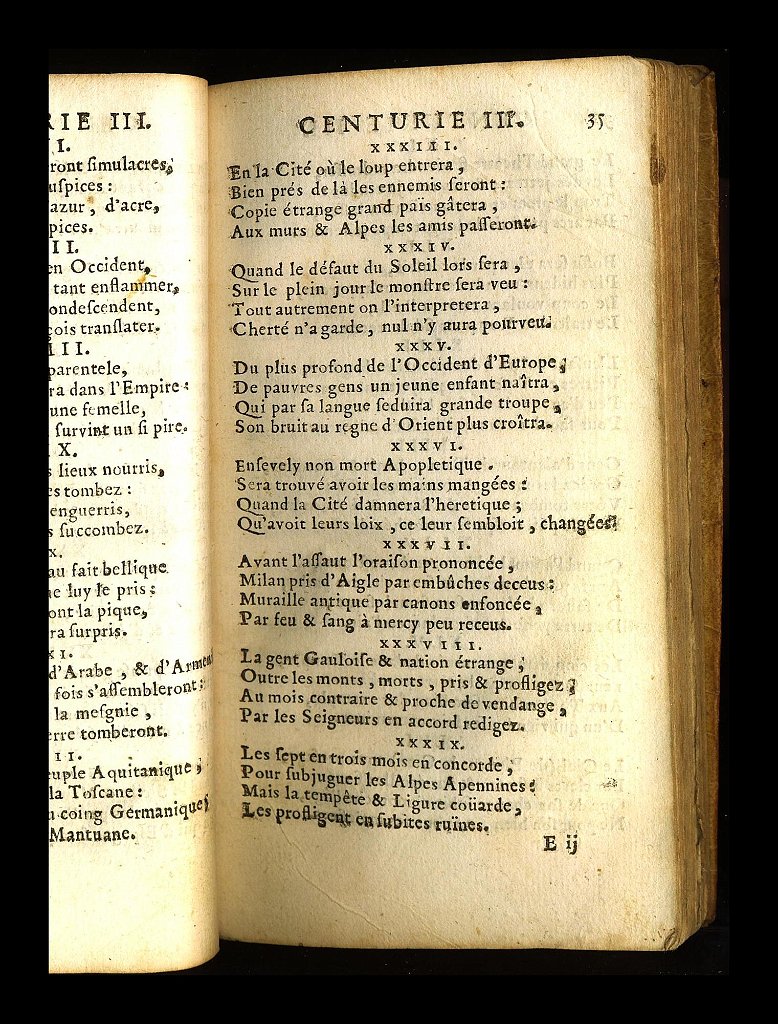 RIE III.
I.
ront simulacres,
uspices :
azur , d'acre,
pices.
II.
en Occident,
tant enflammer,
ondescendent,
çois translater.
III.
parentele,
ra dans l'Empire :
une femelle,
survint un si pire.
X.
s lieux nourris,
es tombez :
enguerris,
s succombez.
x.
au fait bellique
e luy le pris :
ont la pique,
ra surpris.
XI.
d'Arabe , & d'Armen
fois s'assembleront :
la mesgnie ,
erre tomberont.
II.
euple Aquitanique ,
la Toscane :
u coing Germanique ,
Mantuane.
CENTURIE III. 35
XXXIII.
En la Cité où le loup entrera ,
Bien prés de là les ennemis seront :
Copie étrange grand païs gâtera ,
Aux murs & Alpes les amis passeront.
XXXIV.
Quand le défaut du Soleil lors sera ,
Sur le plein jour le monstre sera veu :
Tout autrement on l'interpretera ,
Cherté n'a garde , nul n'y aura pourveu.
XXXV.
Du plus profond de l'Occident d'Europe ,
De pauvres gens un jeune enfant naîtra ,
Qui par sa langue seduira grande troupe ,
Son bruit au regne d'Orient plus croîtra.
XXXVI.
Ensevely non mort Apopletique .
Sera trouvé avoir les mains mangées :
Quand la Cité damnera l'heretique ;
Qu'avoit leurs loix , ce leur sembloit , changées.
XXXVII.
Avant l'assaut l'oraison prononcée ,
Milan pris d'Aigle par embûches deceus :
Muraille antique par canons enfoncée ,
Par feu & sang à mercy peu receus.
XXXVIII.
La gent Gauloise & nation étrange ;
Outre les monts , morts , pris & profligez ;
Au mois contraire & proche de vendange ,
Par les Seigneurs en accord redigez.
XXXIX.
Les sept en trois mois en concorde ,
Pour subjuguer les Alpes Apennines :
Mais la tempête & Ligure coüarde ,
Les profligent en subites ruïnes.
E ij